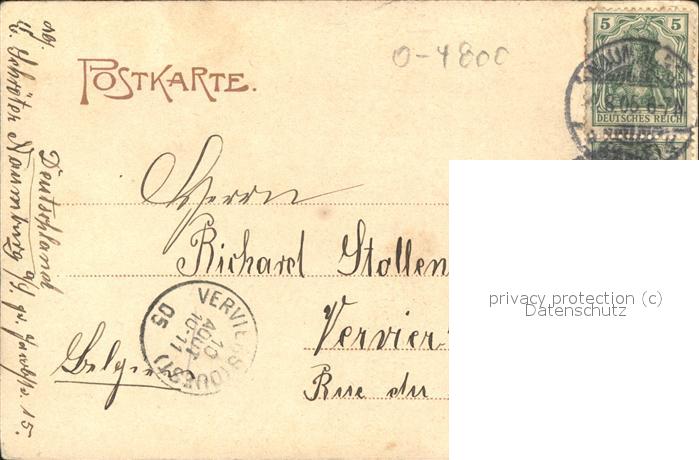 0-4800
POSTKARTE.
5 5
DEUTSCHES REICH
8.05 6-7
Herrn
Richard Stollen
Vervier
Rue du
Belgien
VERVIERS (OUEST)
10
AOUT
10-11
05
Deutschland
Schröter Naumburg a/S.
15.
privacy protection (c)
Datenschutz